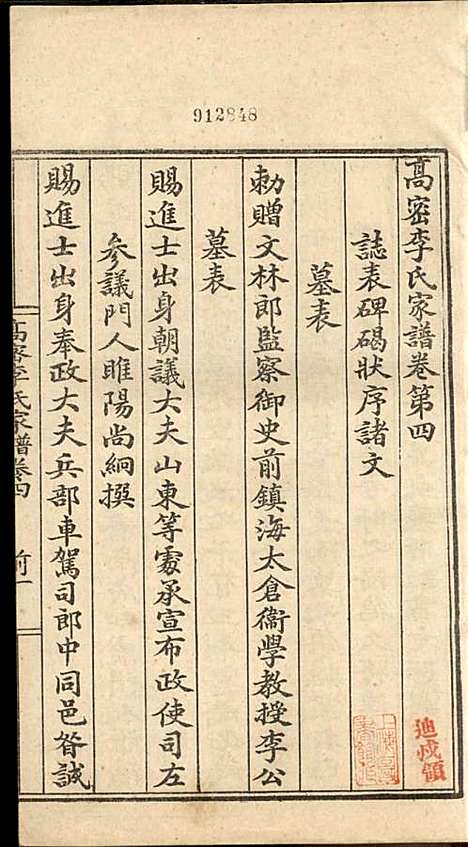 912848
高密李氏家譜卷第四
誌表碑碣狀序諸文
墓表
勅贈文林郎監察御史前鎮海太倉衞學教授李公
墓表
賜進士出身朝議大夫山東等處承宣布政使司左
參議門人睢陽尚絅撰
賜進士出身奉政大夫兵部車駕司郎中同邑昝誠
高密李氏家譜卷四
前一